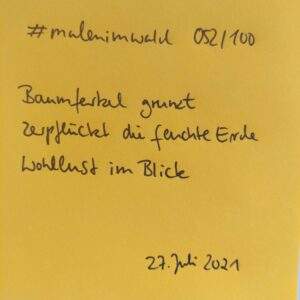 #malenimwald 052/100
Baumferkel grunzt
zerpflückt die feuchte Erde
Wohllust im Blick
27. Juli 2021